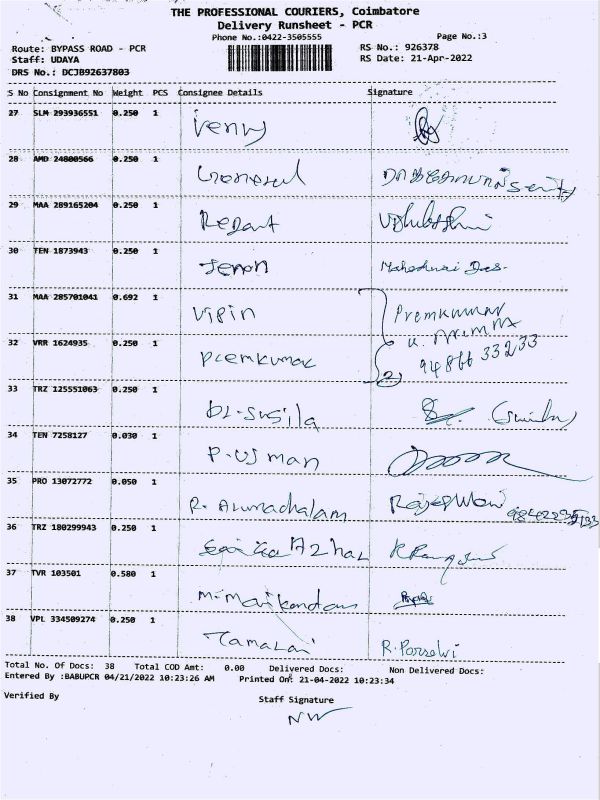 THE PROFESSIONAL COURIERS, Coimbatore
Delivery Runsheet - PCR
Phone No.:0422-3505555 Page No.:3
Route: BYPASS ROAD - PCR RS No.: 926378
Staff: UDAYA RS Date: 21-Apr-2022
DRS No.: DCJB92637803
S No Consignment No Weight PCS Consignee Details Signature
27 SLM 293936551 0.250 1 Venu
28 AMD 24800566 0.250 1
29 MAA 289165204 0.250 1
30 TEN 1873943 0.250 1 Jenon
31 MAA 285701041 0.692 1 Vipin Premkumar
32 VRR 1624935 0.250 1 Premkumar 94866 33233
2
33 TRZ 125551063 0.250 1 Dr. Susila
34 TEN 7258127 0.030 1 P. Usman
35 PRO 13072772 0.050 1 R. Arunachalam
36 TRZ 180299943 0.250 1 Azhar
37 TVR 103501 0.580 1 M. Manikandan
38 VPL 334509274 0.250 1 R. Porselvi
Total No. Of Docs: 38 Total COD Amt: 0.00 Delivered Docs: Non Delivered Docs:
Entered By :BABUPCR 04/21/2022 10:23:26 AM Printed On: 21-04-2022 10:23:34
Verified By Staff Signature